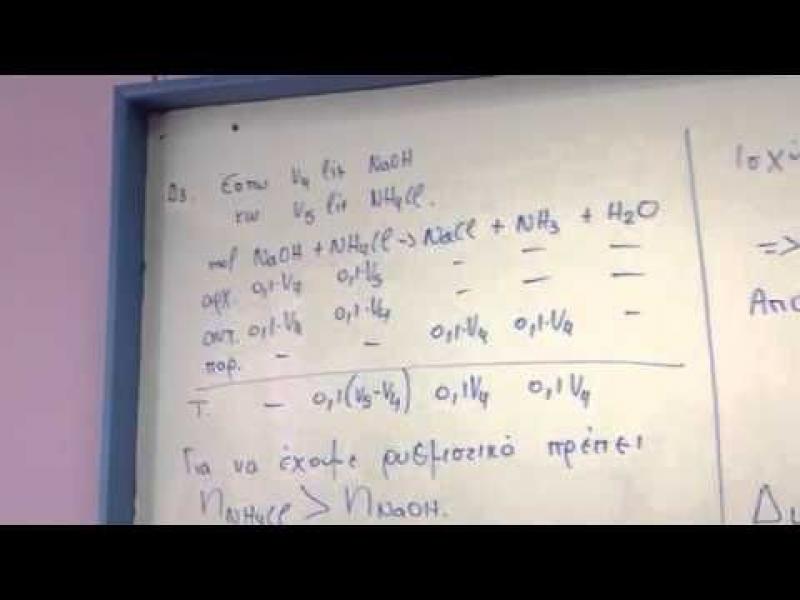 Δ3. Έστω V4 lit NaOH
και V5 lit NH4Cl.
mol NaOH + NH4Cl → NaCl + NH3 + H2O
αρχ. 0,1·V4 0,1·V5 - — —
αντ. 0,1·V4 0,1·V4 - — —
παρ. - - 0,1·V4 0,1·V4 -
τ. — 0,1(V5-V4) 0,1V4 0,1V4
Για να έχουμε ρυθμιστικό πρέπει
nNH4Cl > nNaOH.
Ισχύ
=>
Απο
Δι